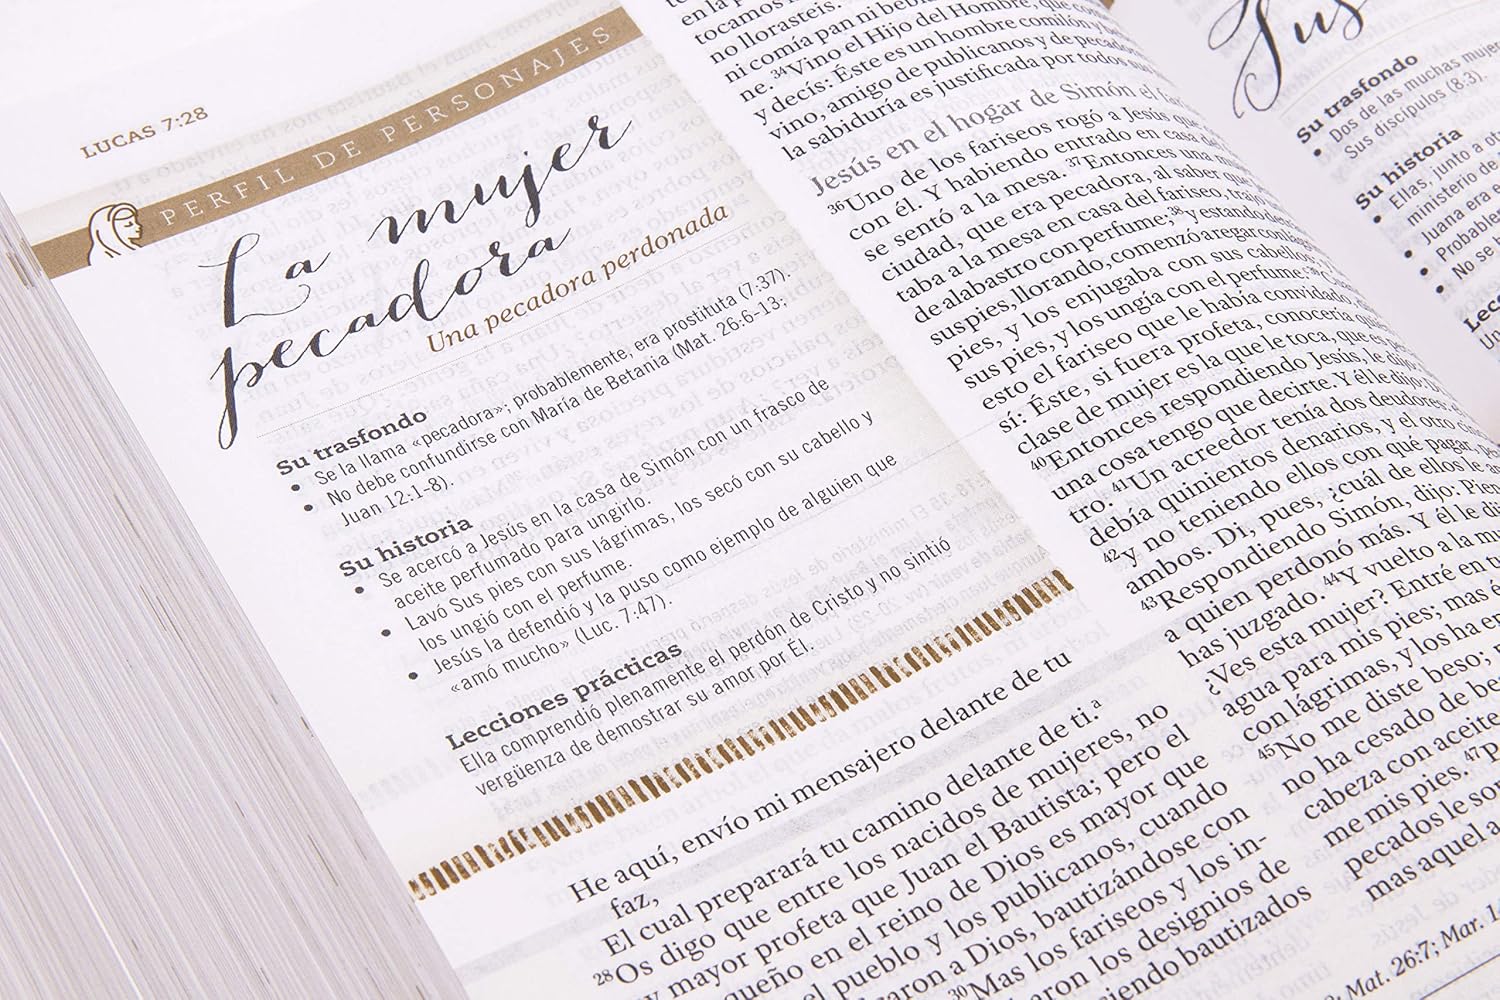 LUCAS 7:28
PERFIL DE PERSONAJES
La mujer
pecadora
Una pecadora perdonada
Su trasfondo
• Se la llama «pecadora»; probablemente, era prostituta (7:37).
• No debe confundirse con María de Betania (Mat. 26:6-13;
Juan 12:1-8).
Su historia
• Se acercó a Jesús en la casa de Simón con un frasco de
aceite perfumado para ungirlo.
• Lavó Sus pies con sus lágrimas, los secó con su cabello y
los ungió con el perfume.
• Jesús la defendió y la puso como ejemplo de alguien que
«amó mucho» (Luc. 7:47).
Lecciones prácticas
Ella comprendió plenamente el perdón de Cristo y no sintió
vergüenza de demostrar su amor por Él.
He aquí, envío mi mensajero delante de tu
faz,
El cual preparará tu camino delante de ti.ª
28Os digo que entre los nacidos de mujeres, no
mayor profeta que Juan el Bautista; pero el
queño en el reino de Dios es mayor que
el pueblo y los publicanos, cuando
caron a Dios, bautizándose con
30Mas los fariseos y los in-
aron los designios de
iendo bautizados
en la p
tocamos
no llorasteis.
ni comía pan ni beb
ne. 34Vino el Hijo del Hombre, que
y decís: Éste es un hombre comilón y b
vino, amigo de publicanos y de pecador
la sabiduría es justificada por todos su
Jesús en el hogar de Simón el
36Uno de los fariseos rogó a Jesús que
con él. Y habiendo entrado en casa de
se sentó a la mesa. 37Entonces una m
ciudad, que era pecadora, al saber que
taba a la mesa en casa del fariseo, trajo
de alabastro con perfume; 38y estando de
sus pies, llorando, comenzó a regar con
pies, y los enjugaba con sus cabellos;
sus pies, y los ungía con el perfume.
esto el fariseo que le había convidado,
sí: Éste, si fuera profeta, conocería qu
clase de mujer es la que le toca, que es pe
40Entonces respondiendo Jesús, le dijo:
una cosa tengo que decirte. Y él le dijo: D
tro. 41Un acreedor tenía dos deudores: e
debía quinientos denarios, y el otro ci
42y no teniendo ellos con qué pagar, pe
ambos. Di, pues, ¿cuál de ellos le a
43Respondiendo Simón, dijo: Pien
a quien perdonó más. Y él le di
has juzgado. 44Y vuelto a la mu
¿Ves esta mujer? Entré en tu
agua para mis pies; mas é
con lágrimas, y los ha en
45No me diste beso;
no ha cesado de be
cabeza con aceite
me mis pies. 47P
pecados le son
mas aquel a
Mat. 26:7; Mar. 1
Su trasfondo
• Dos de las muchas mujer
Sus discípulos (8:3).
Su historia
• Ellas, junto a ot
ministerio de
• Juana era e
• Probable
• No se h
Lec
Un